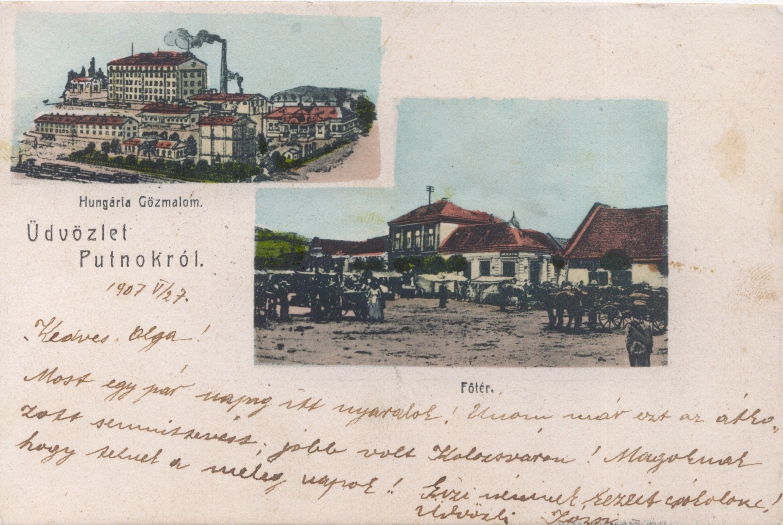 Hungária Gőzmalom.
Üdvözlet
Putnokról.
1907 V/27.
Kedves Olga!
Most egy pár napig itt nyaralok! Unom már ezt az átko-
zott semmittevést, jobb volt Kolozsváron! Magoknak
hogy telnek a meleg napok!! néninek kezeit csókolom!
Üdvözli
Főtér.